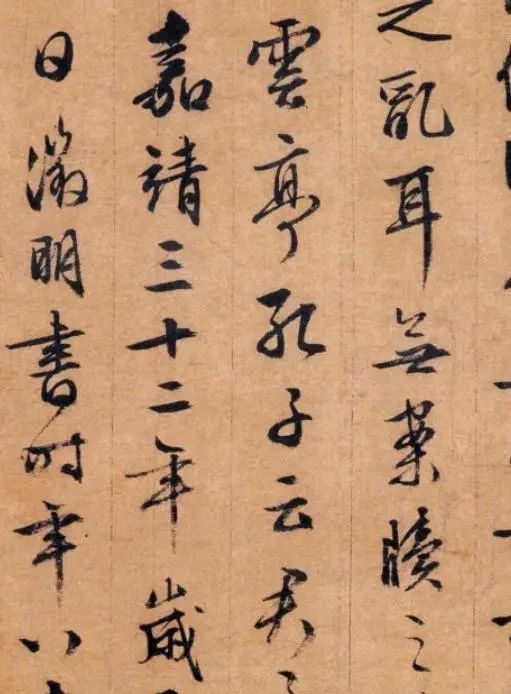 之亂耳無案牘之
雲亭孔子云
嘉靖三十二年歲
日徵明書時年八